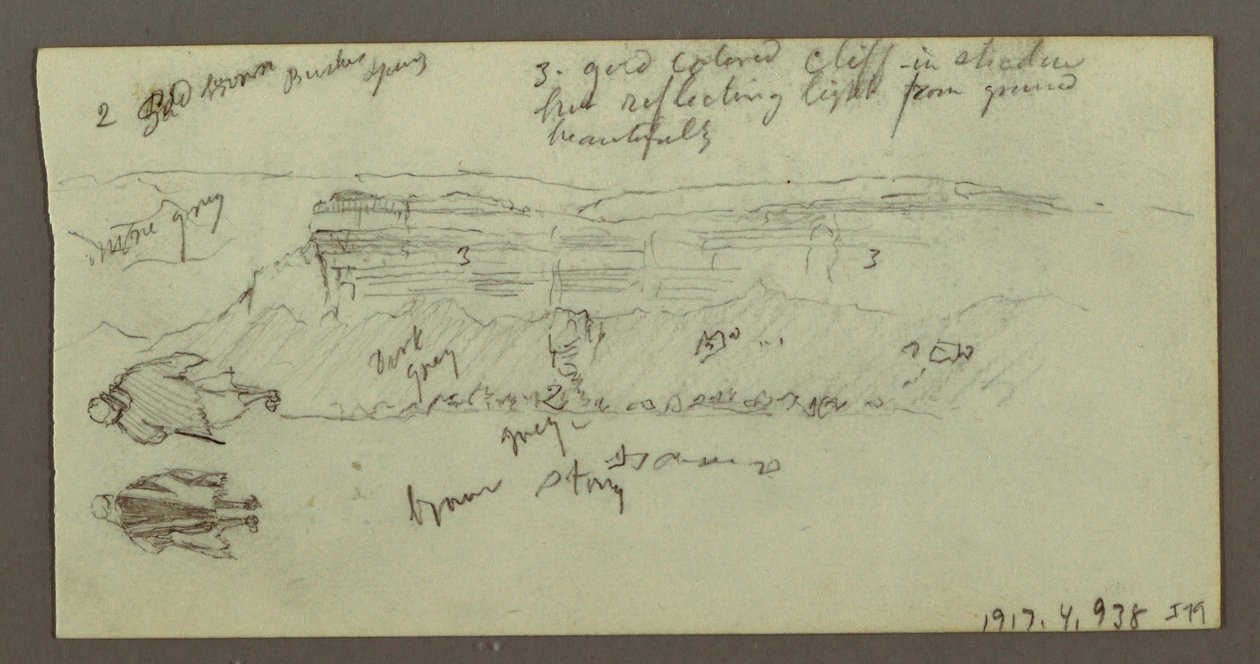 2 Red brown Bushes
3. gold colored cliff in shadow
but reflecting light from ground
beautifully
more grey
3
3
Dark
grey
2
grey
brown stony
1917.4.938 J79